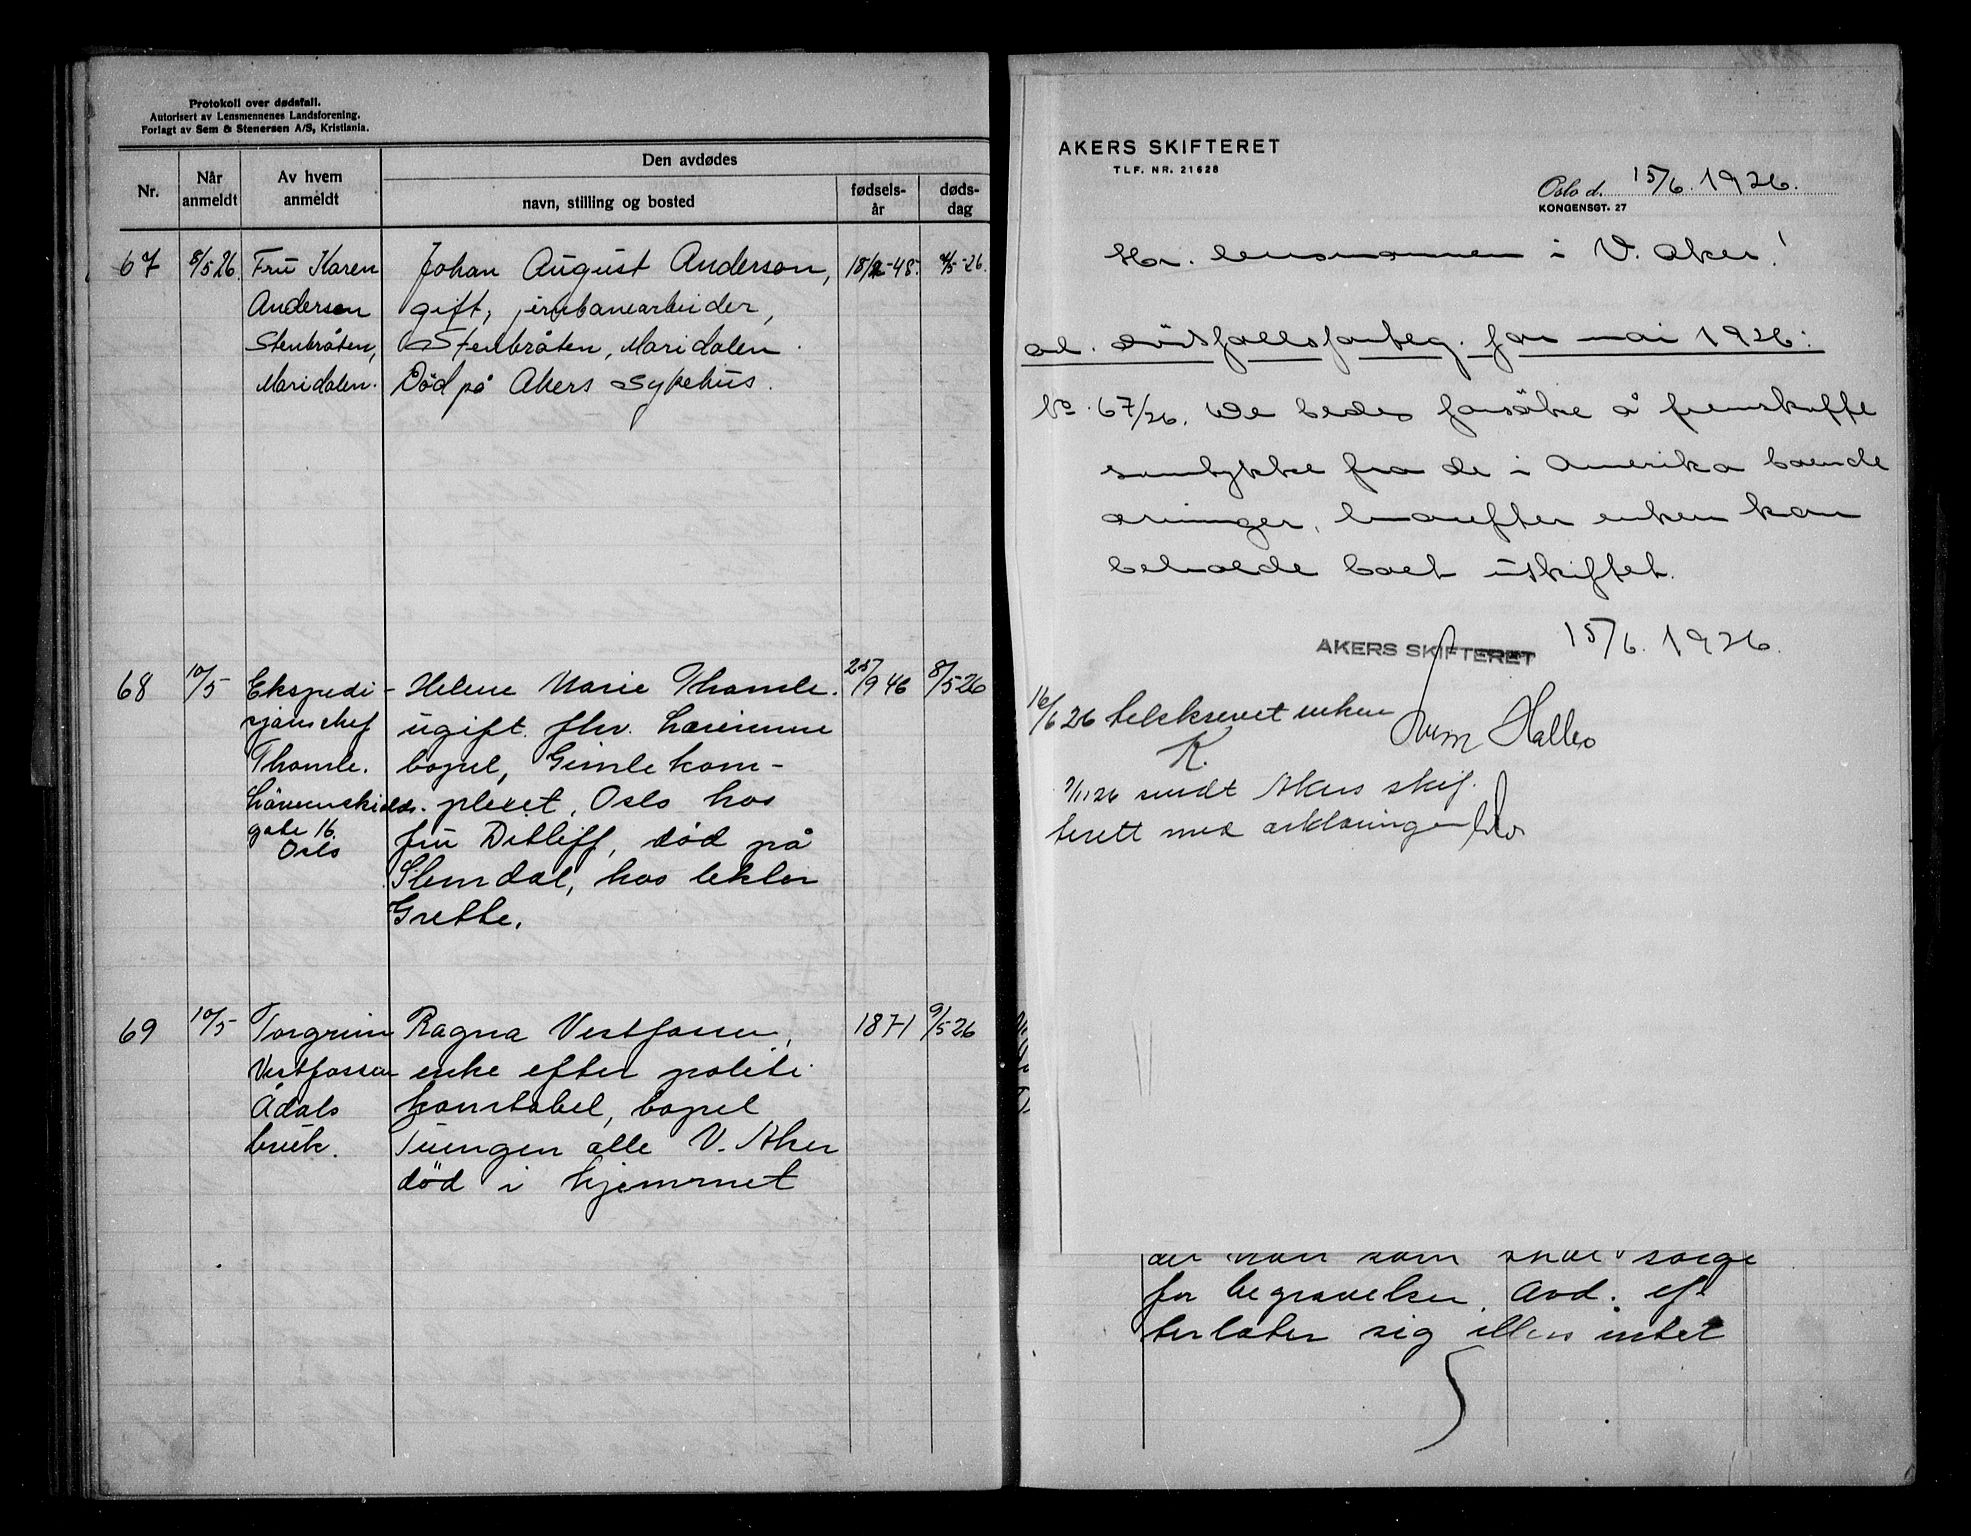 Protokoll over dødsfall.
Autorisert av Lensmennenes Landsforening.
Forlagt av Sem & Stenersen A/S, Kristiania.
Nr.
Når anmeldt
Av hvem anmeldt
Den avdødes
navn, stilling og bosted
fødsels-år
døds-dag
67
8/5 26.
Fru Karen
Anderson
Stenbråten,
Maridalen.
Johan August Anderson,
gift, jernbanearbeider,
Stenbråten, Maridalen.
Død på Akers sykehus.
-48.
/5-26.
68
10/5
Ekspedi-
sjonschef
Thomle.
Løvenskiolds.
gate 16.
Oslo
Helene Marie Thomle.
ugift. fhv. Lærerinne
bopel, Gimle kom-
plexet, Oslo hos
fru Ditleff, død på
Slemdal, hos lektor
Grette.
25/9 46
8/5 26
69
10/5
Torgrim
Vestfossen
Ådals
bruk.
Ragna Vestfossen,
enke efter politi-
konstabel, bopel
Tuengen alle V. Aker
død i hjemmet
1871
9/5 26
AKERS SKIFTERET
TLF. NR. 21628
Oslo d. 15/6. 1926.
KONGENSGT. 27
Hr. lensmannen i V. Aker!
ad. dødsfallsforteg. for mai 1926:
No. 67/26. De bedes forsøke å fremskaffe
samtykke fra de i Amerika boende
arvinger, hvorefter enken kan
beholde boet uskiftet.
AKERS SKIFTERET 15/6. 1926.
16/6 26 tilskrevet enken
K.
/11 26 sendt Akers skif-
terett med erklæringen
der som skal sørge
for begravelsen. Avd. ef-
terlater sig ellers intet